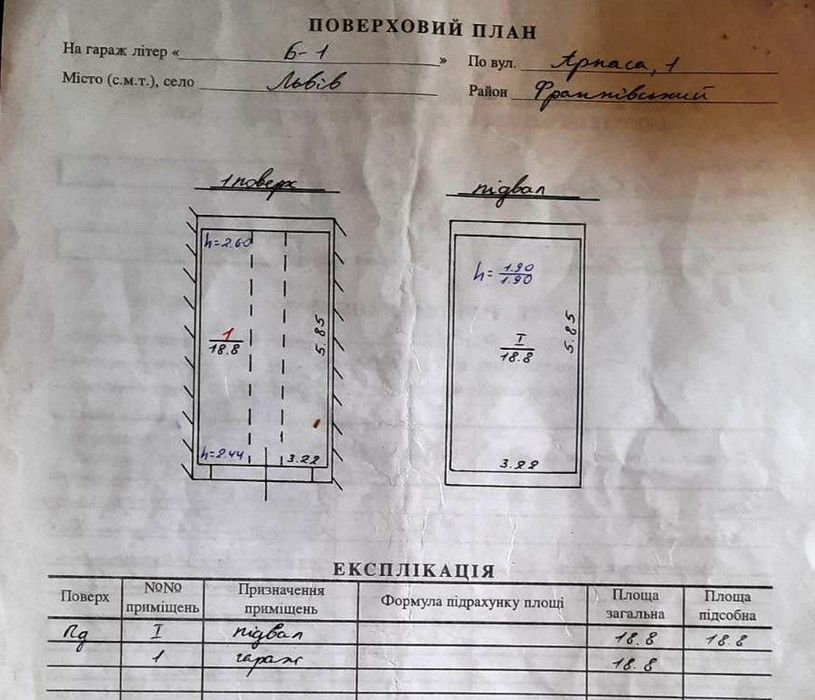 ПОВЕРХОВИЙ ПЛАН
На гараж літер « Б-1 » По вул. Арпаса, 1
Місто (с.м.т.), село Львів Район Франківський
1 поверх підвал
h=2.60
h= 1.90
1.90
1
18.8
5.85
I
18.8
5.85
h=2.44 3.22
3.22
ЕКСПЛІКАЦІЯ
Поверх №№ приміщень Призначення приміщень Формула підрахунку площі Площа загальна Площа підсобна
Пд I підвал 18.8 18.8
1 гараж 18.8